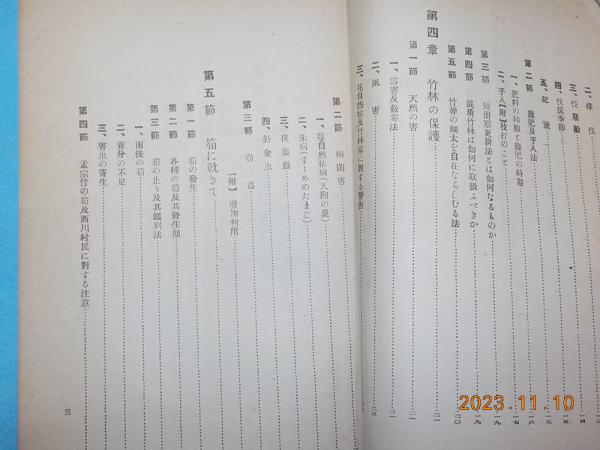 二、擇伐
三、伐採齡
四、伐採季節
五、記號
第二節 施肥及手入法
一、肥料の種類と施肥の時期
二、手入【附】枝打のこと
第三節 矯樹形更新法とは如何なるものか
第四節 混淆竹林は如何に取扱ふべきか
第五節 竹幹の細太を自在ならしむる法
第四章 竹林の保護
第一節 天然の害
一、雪害及救濟法
二、風害
三、花自然枯及竹林家に對する警告
第二節 病菌害
一、竹自然枯病(天狗の巢)
二、朱病(すゞめのたまご)
三、夜盜蟲
四、針金虫
第三節 竊盜
【附】廢物利用
第五節 筍に就きて
第一節 筍の發生
第二節 各種の筍及其發生期
第三節 筍の止り及其鑑別法
一、雨後の筍
二、養分の不足
三、害虫の寄生
第四節 孟宗竹の筍及西川村民に對する注意
三
2023.11.10